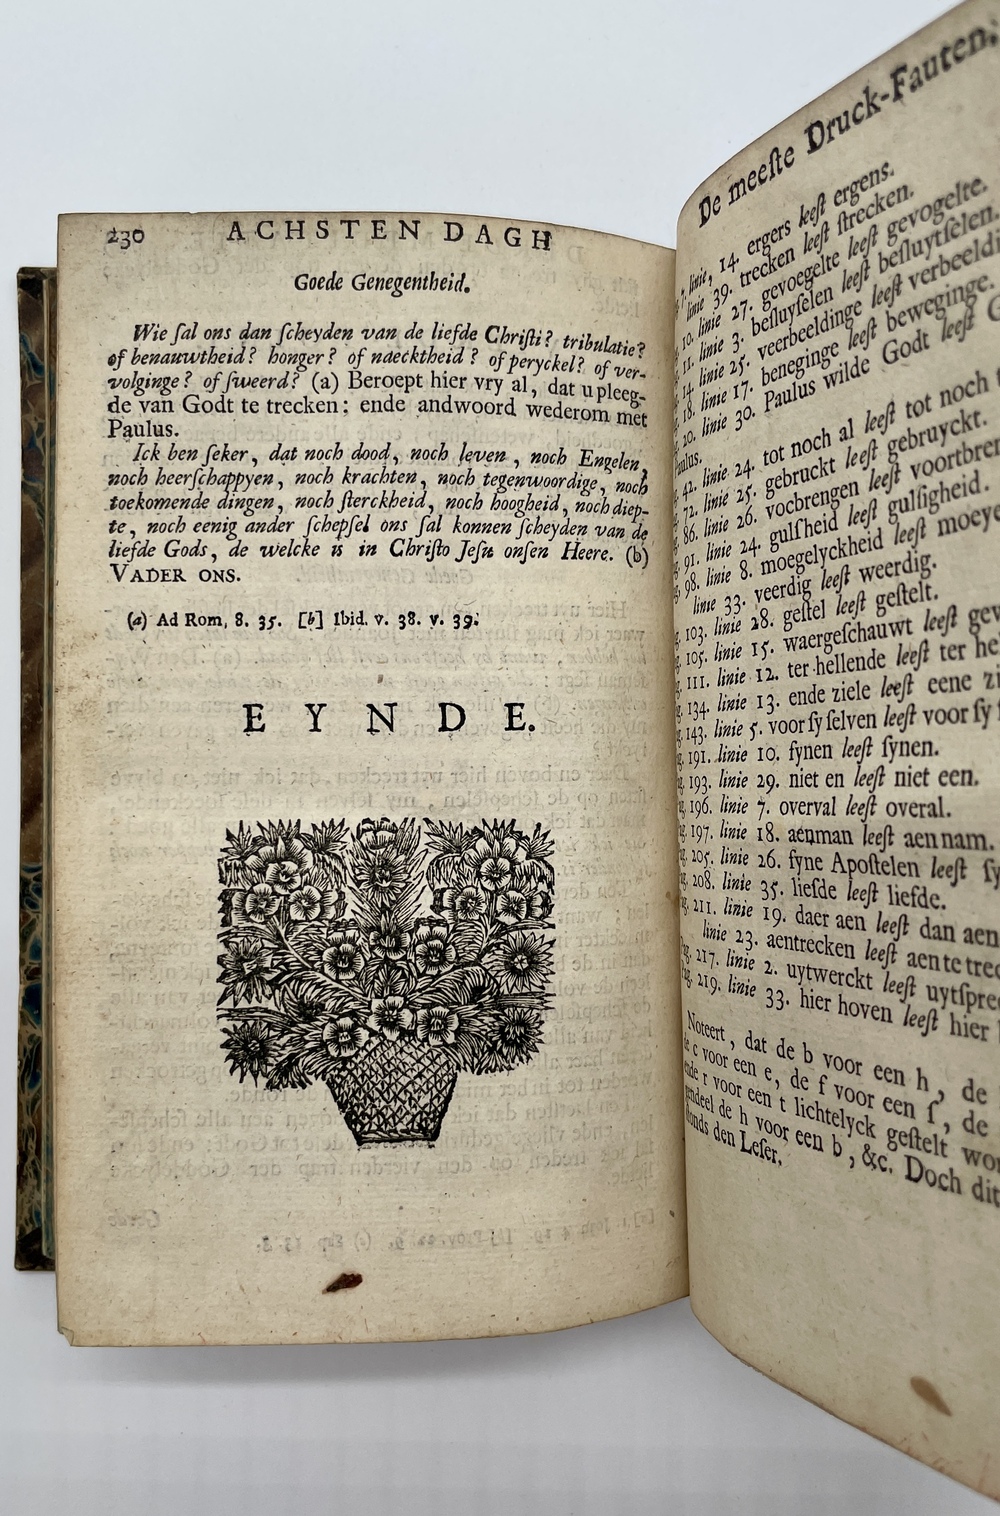 230 ACHSTEN DAGH
Goede Genegentheid.
Wie ſal ons dan ſcheyden van de liefde Chriſti? tribulatie?
of benauwtheid? honger? of naecktheid? of peryckel? of ver-
volginge? of ſweerd? (a) Beroept hier vry al, dat u pleeg-
de van Godt te trecken: ende andwoord wederom met
Paulus.
Ick ben ſeker, dat noch dood, noch leven, noch Engelen,
noch heerſchappyen, noch krachten, noch tegenwoordige, noch
toekomende dingen, noch ſterckheid, noch hoogheid, noch diep-
te, noch eenig ander ſchepſel ons ſal konnen ſcheyden van de
liefde Gods, de welcke is in Chriſto Jeſu onſen Heere. (b)
VADER ONS.
(a) Ad Rom, 8. 35. [b] Ibid. v. 38. v. 39.
EYNDE.
De meeſte Druck-Fauten.
7. linie, 14. ergers leeſt ergens.
linie 39. trecken leeſt ſtrecken.
10. linie 27. gevoegelte leeſt gevogelte.
11. linie 3. beſluyſelen leeſt beſluytſelen.
14. linie 25. veerbeeldinge leeſt verbeeldi
18. linie 17. beneginge leeſt beweginge.
20. linie 30. Paulus wilde Godt leeſt G
Paulus.
42. linie 24. tot noch al leeſt tot noch t
72. linie 25. gebruckt leeſt gebruyckt.
86. linie 26. vocbrengen leeſt voortbre
91. linie 24. gulſheid leeſt gulſigheid.
98. linie 8. moegelyckheid leeſt moeye
linie 33. veerdig leeſt weerdig.
103. linie 28. geſtel leeſt geſtelt.
105. linie 15. waergeſchauwt leeſt gev
111. linie 12. ter hellende leeſt ter he
134. linie 13. ende ziele leeſt eene zi
143. linie 5. voor ſy ſelven leeſt voor ſy
191. linie 10. fynen leeſt ſynen.
193. linie 29. niet en leeſt niet een.
196. linie 7. overval leeſt overal.
197. linie 18. aenman leeſt aennam.
205. linie 26. ſyne Apoſtelen leeſt ſy
208. linie 35. lieſde leeſt liefde.
211. linie 19. daer aen leeſt dan aen
linie 23. aentrecken leeſt aen te trec
217. linie 2. uytwerckt leeſt uytſpre
219. linie 33. hier hoven leeſt hier
Noteert, dat de b voor een h, de
de c voor een e, de f voor een ſ, de
ende r voor een t lichtelyck geſtelt wo
de h voor een b, &c. Doch dit
den Leſer.